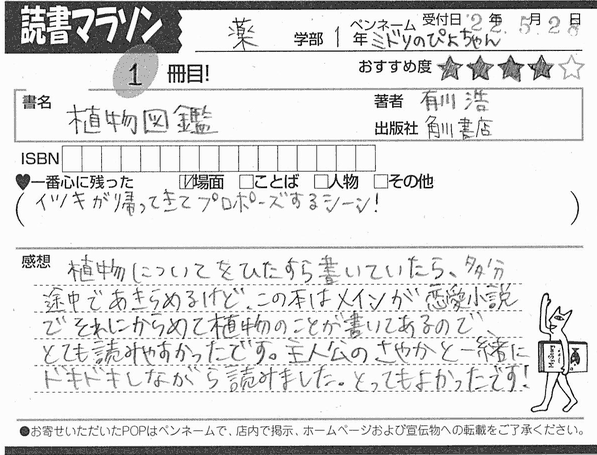 読書マラソン
薬 学部 1 年 ペンネーム ミドリのぴよちゃん 受付日 '22年 5月 2 日
1 冊目!
おすすめ度 ★★★★☆
書名 植物図鑑
著者 有川 浩
出版社 角川書店
ISBN
♥一番心に残った ☑場面 □ことば □人物 □その他
(イツキが帰ってきてプロポーズするシーン!)
感想 植物についてをひたすら書いていたら、多分
途中であきらめるけど、この本はメインが恋愛小説
でそれにからめて植物のことが書いてあるので、
とても読みやすかったです。主人公のさやかと一緒に
ドキドキしながら読みました。とってもよかったです!
●お寄せいただいたPOPはペンネームで、店内で掲示、ホームページおよび宣伝物への転載をご了承ください。